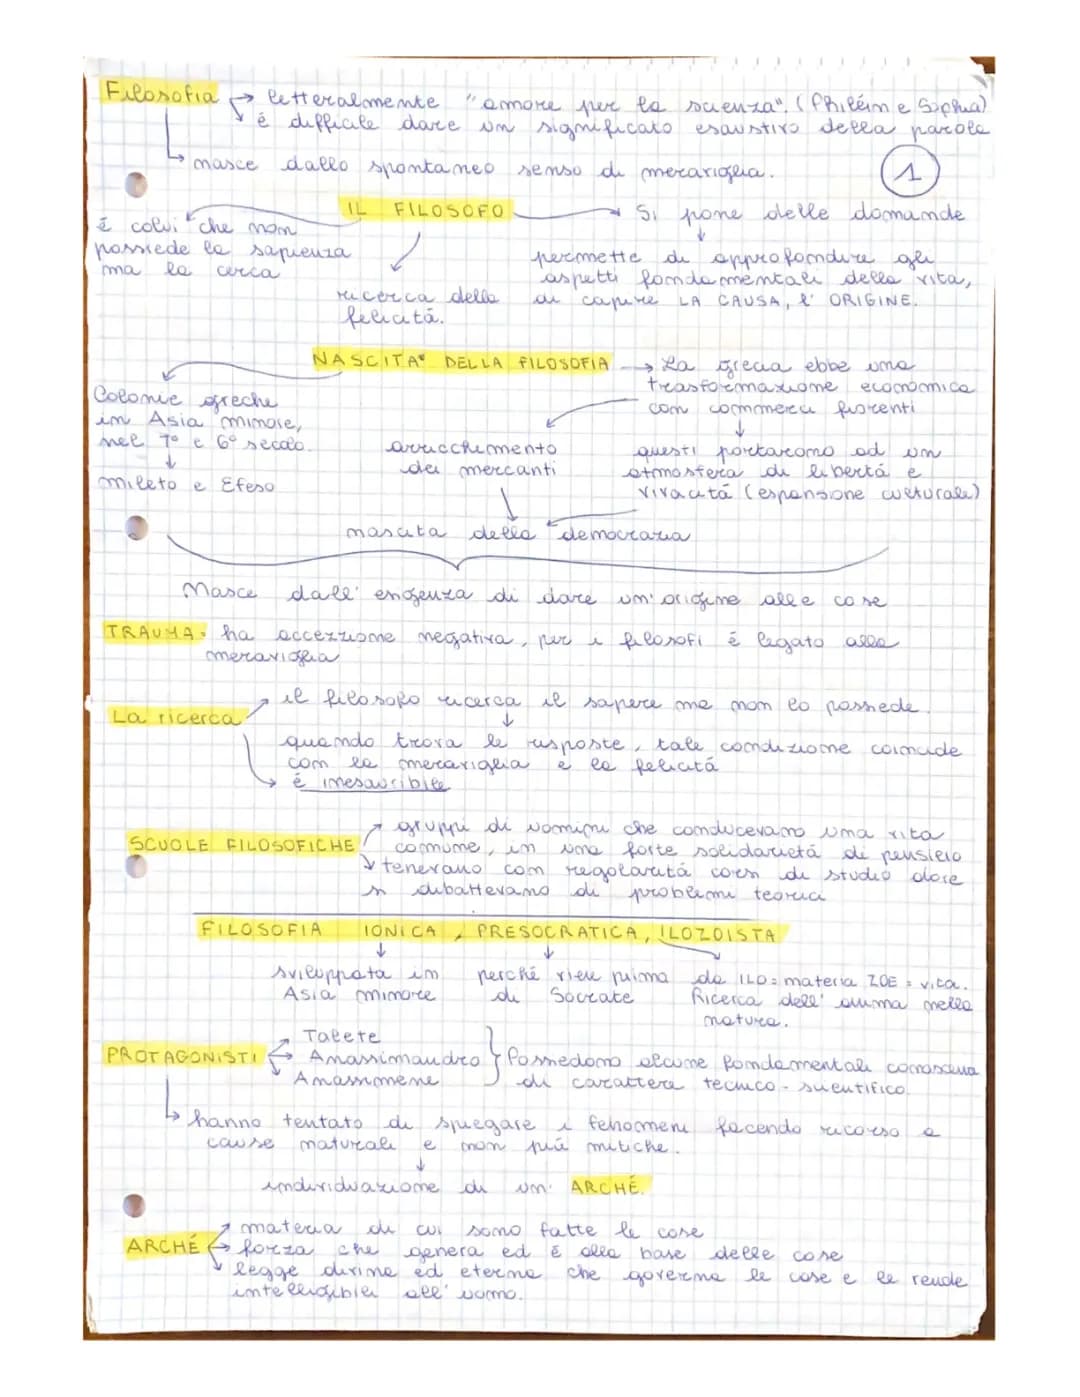 Filosofia → letteralmente "amore per la scienza". (Philéin e Sophia)
é difficile dare un significato esaustivo della parola
nasce dallo spontaneo senso di meraviglia.
1
IL FILOSOFO → Si pone delle domande
é colui che non
possiede la sapienza
ma la cerca
ricerca della
felicitá.
permette di approfondire gli
aspetti fondamentali della vita,
di capire LA CAUSA, l' ORIGINE.
NASCITA' DELLA FILOSOFIA → La grecia ebbe una
trasformazione economica
con commerci fiorenti
Colonie greche
in Asia minore,
nel 7° e 6° secolo.
mileto e Efeso
arricchimento
dei mercanti
questi portarono ad un
atmosfera di libertá e
vivacitá (espansione culturale)
nascita della democrazia
Nasce dall' esigenza di dare un' origine alle cose
TRAUMA: ha accezzione negativa, per i filosofi é legato alla
meraviglia
La ricerca
il filosofo ricerca il sapere ma non lo possiede.
quando trova le risposte, tale condizione coincide
con la meraviglia e la felicitá
é inesauribile
SCUOLE FILOSOFICHE
gruppi di uomini che conducevano una vita
comune, in una forte solidarietá di pensiero
tenevano con regolaritá corsi di studio dove
si dibattevano di problemi teorici
FILOSOFIA IONICA, PRESOCRATICA, ILOZOISTA
sviluppata in
Asia minore
perché viene prima
di Socrate
da ILO = materia ZOE = vita.
Ricerca dell' anima nella
natura.
PROTAGONISTI
Talete
Anassimandro
Anassimene
Possiedono alcune fondamentali conoscenze
di carattere tecnico-scientifico.
hanno tentato di spiegare i fenomeni facendo ricorso a
cause naturali e non piú mitiche.
individuazione di un' ARCHÉ.
ARCHÉ
materia di cui sono fatte le cose
forza che genera ed é alla base delle cose
legge divina ed eterna che governa le cose e le rende
intelligibili all' uomo.